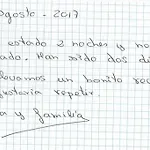 Agosto - 2017
estado 2 noches y no
ado. Han sido dos di
levamos un bonito rec
ustaria repetir
a y familia